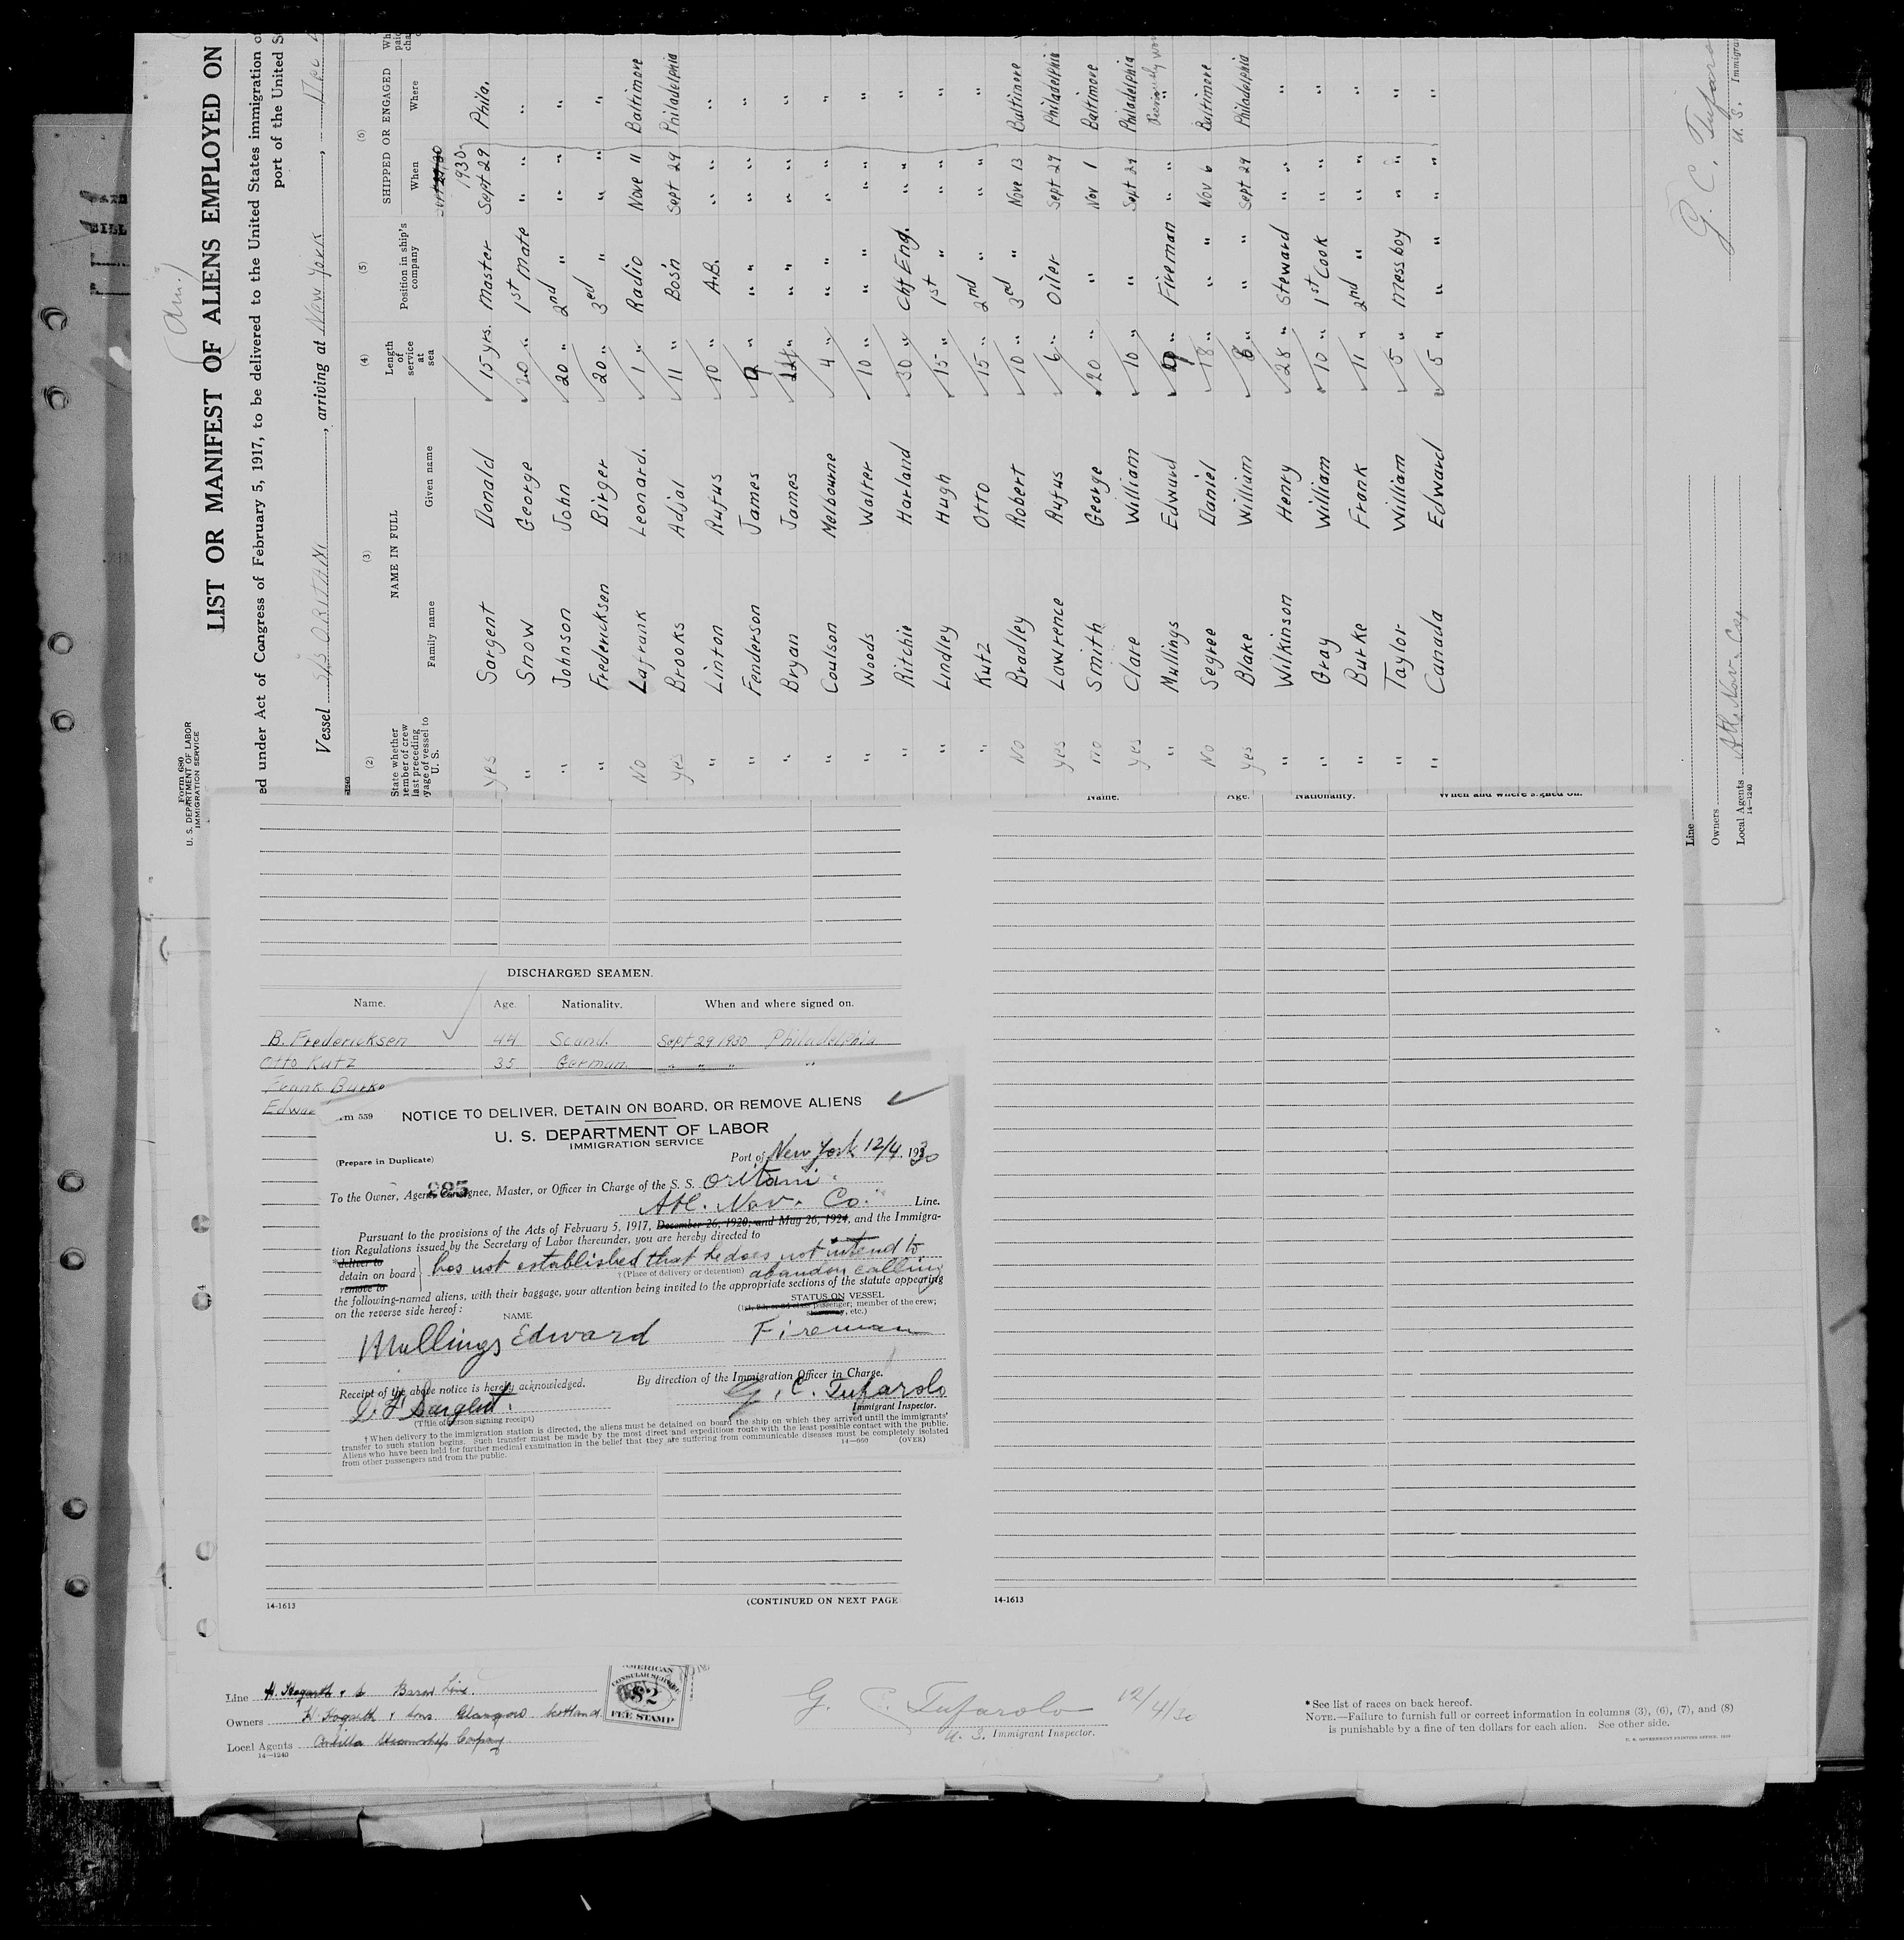 (Am.)
Form 680
U. S. DEPARTMENT OF LABOR
IMMIGRATION SERVICE
LIST OR MANIFEST OF ALIENS EMPLOYED ON
ed under Act of Congress of February 5, 1917, to be delivered to the United States immigration
port of the United
Vessel S/S ORITANI, arriving at New York, Dec
(2) (3) (4) (5) (6)
State whether member of crew last preceding voyage of vessel to U. S. NAME IN FULL Family name Given name Length of service at sea Position in ship's company SHIPPED OR ENGAGED When Where
1930
yes Sargent Donald 15 yrs. Master Sept 29 Phila.
" Snow George 20 " 1st Mate " " "
" Johnson John 20 " 2nd " " " "
" Fredericksen Birger 20 " 3rd " " " "
No Lafrank Leonard. 1 " Radio Nove 11 Baltimore
yes Brooks Adjal 11 " Bos'n Sept 29 Philadelphia
" Linton Rufus 10 " A.B. " " "
" Fenderson James 9 " " " " " "
" Bryan James " " " " " "
" Coulson Melbourne 4 " " " " " "
" Woods Walter 10 " " " " " "
" Ritchie Harland 30 " Chf Eng. " " "
" Lindley Hugh 15 " 1st " " " "
" Kutz Otto 15 " 2nd " " " "
No Bradley Robert 10 " 3rd " Nove 13 Baltimore
yes Lawrence Rufus 6 " Oiler Sept 29 Philadelphia
no Smith George 20 " " Nov 1 Baltimore
yes Clare William 10 " " Sept 29 Philadelphia
" Mullings Edward 9 " Fireman " " "
No Segree Daniel 18 " " " Nov 6 Baltimore
yes Blake William 8 " " " Sept 29 Philadelphia
" Wilkinson Henry 28 " Steward " " "
" Gray William 10 " 1st Cook " " "
" Burke Frank 11 " 2nd " " " "
" Taylor William 5 " Mess boy " " "
" Canada Edward 5 " " " " " "
G. C. Tufarolo
U. S. Immigra
Line
Owners
Local Agents Atl. Nav. Co
14—1240
Name. Age. Nationality. When and where signed on.
DISCHARGED SEAMEN.
Name. Age. Nationality. When and where signed on.
B. Fredericksen 44 Scand. Sept 29 1930 Philadelphia
Otto Kutz 35 German " " " "
Frank Burke
Edwa
rm 559
NOTICE TO DELIVER, DETAIN ON BOARD, OR REMOVE ALIENS
U. S. DEPARTMENT OF LABOR
IMMIGRATION SERVICE
(Prepare in Duplicate)
Port of New York 12/4, 1930
To the Owner, Agent, Consignee, Master, or Officer in Charge of the S. S. Oritani
985
Atl. Nav. Co. Line.
Pursuant to the provisions of the Acts of February 5, 1917, December 26, 1920, and May 26, 1924, and the Immigra-
tion Regulations issued by the Secretary of Labor thereunder, you are hereby directed to
*deliver to
detain on board has not established that he does not intend to
remove to
†(Place of delivery or detention) abandon calling
the following-named aliens, with their baggage, your attention being invited to the appropriate sections of the statute appearing
on the reverse side hereof:
STATUS ON VESSEL
(1st, 2d, or 3d class passenger; member of the crew;
stowaway, etc.)
NAME
Mullings Edward Fireman
Receipt of the above notice is hereby acknowledged.
By direction of the Immigration Officer in Charge.
D. F. Sargent.
G. C. Tufarolo
(Title of person signing receipt)
Immigrant Inspector.
†When delivery to the immigration station is directed, the aliens must be detained on board the ship on which they arrived until the immigrants'
transfer to such station begins. Such transfer must be made by the most direct and expeditious route with the least possible contact with the public.
Aliens who have been held for further medical examination in the belief that they are suffering from communicable diseases must be completely isolated
from other passengers and from the public.
14—660 (OVER)
14-1613
(CONTINUED ON NEXT PAGE
14-1613
Line H. Hogarth & Baron Line.
Owners H. Hogarth & Sons. Glasgow Scotland.
Local Agents Antilla Steamship Company
14—1240
AMERICAN
CONSULAR SERVICE
$2
FEE STAMP
G. C. Tufarolo 12/4/30
U. S. Immigrant Inspector.
*See list of races on back hereof.
NOTE.—Failure to furnish full or correct information in columns (3), (6), (7), and (8)
is punishable by a fine of ten dollars for each alien. See other side.
U. S. GOVERNMENT PRINTING OFFICE